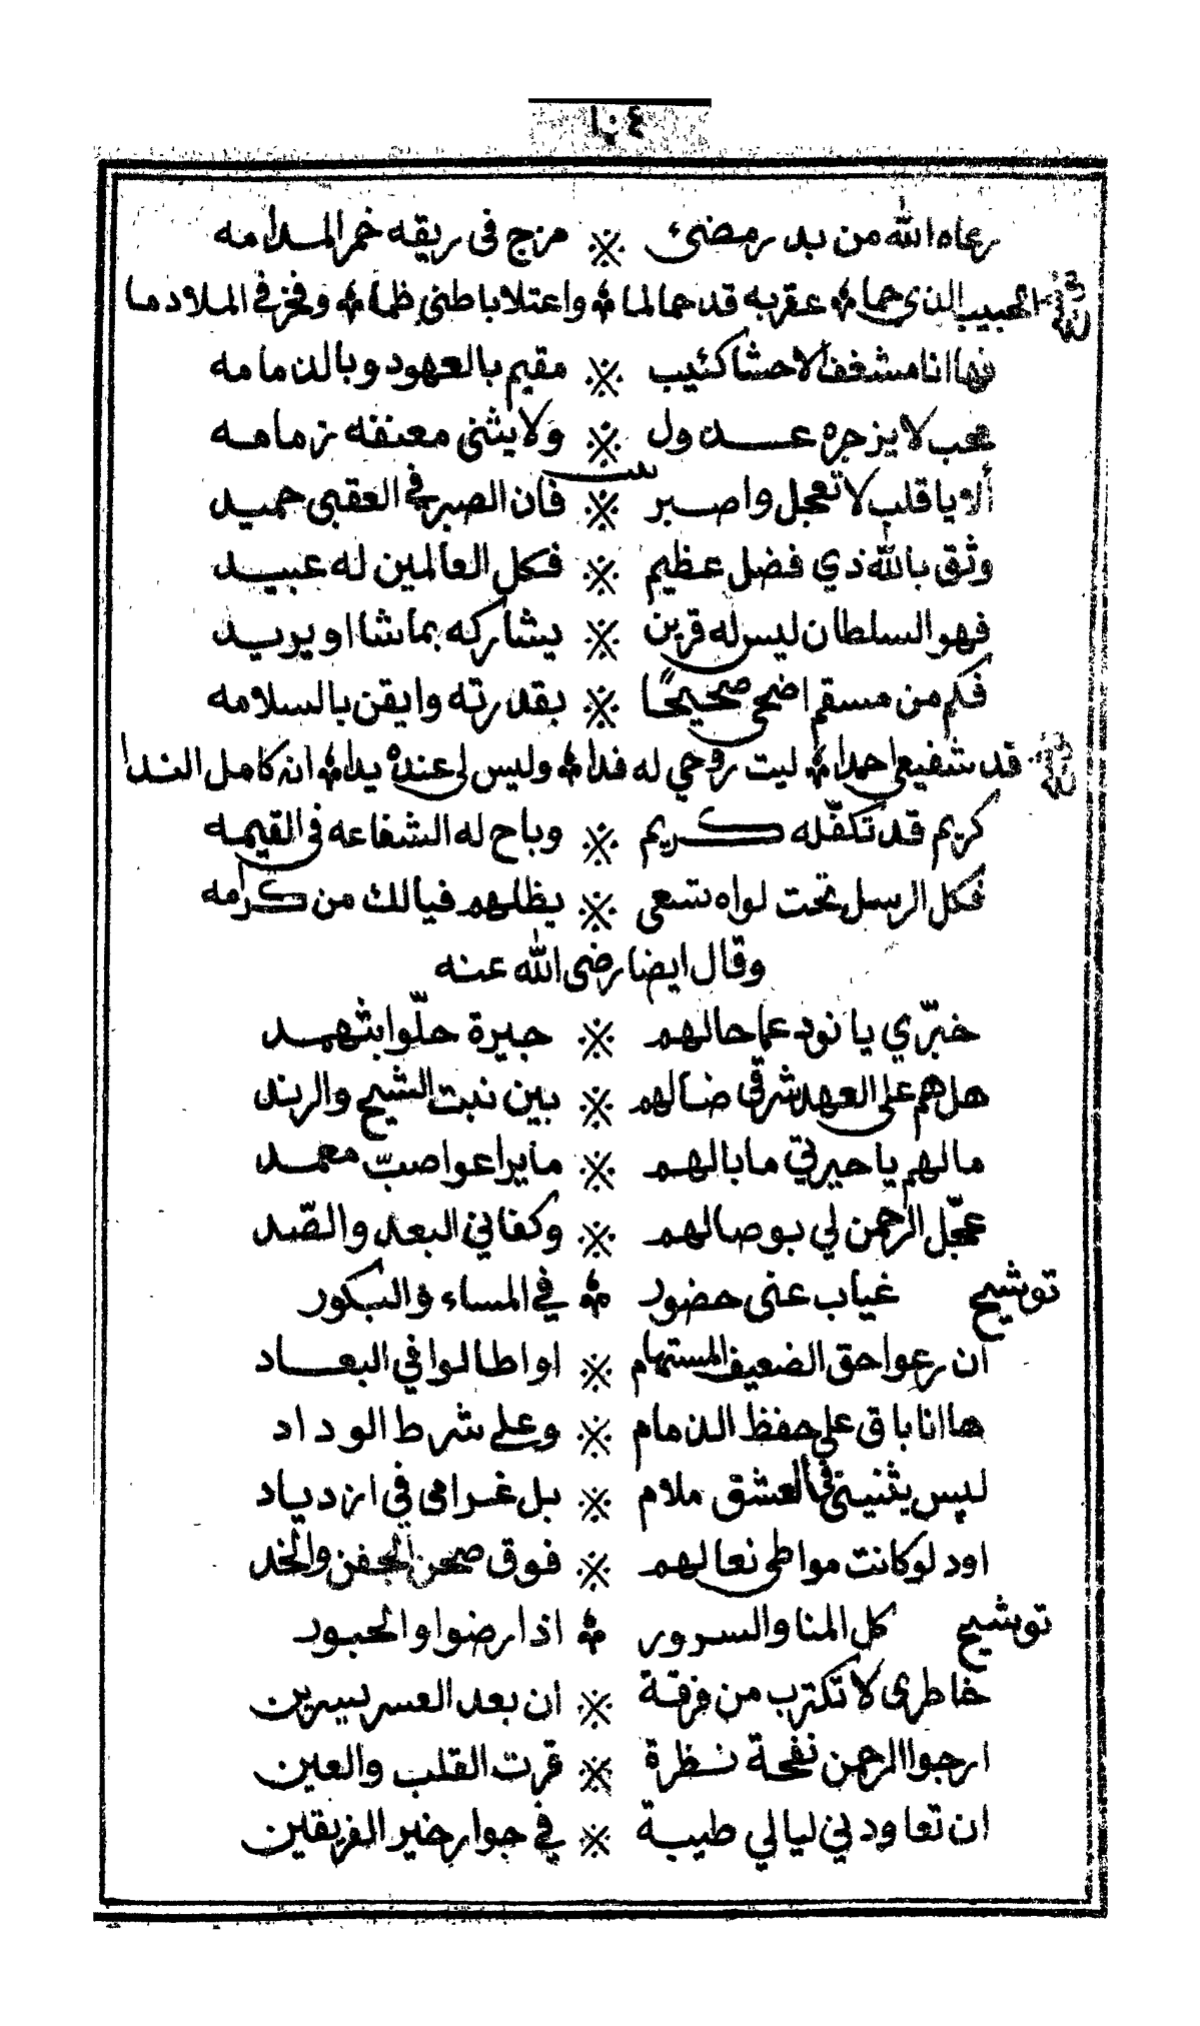 رعاه الله من بدر مضئ ※ مزج فى ريقه خمر المدامه
توشيح الحبيب الذي حما ۞ عقربه قد حما لما ۞ واعتلا باطني ظما ۞ وفخر في الملا دما
فها انا مشغف الاحشا كئيب ※ مقيم بالعهود وبالذمامه
محب لا يزجره عــذول ※ ولا يثنى معنفه زمامه
بيت
ألا يا قلب لا تعجل واصبر ※ فان الصبر في العقبى حميد
وثق بالله ذي فضل عظيم ※ فكل العالمين له عبيد
فهو السلطان ليس له قرين ※ يشاركه بما شا او يريد
فكم من مسقم اضحى صحيحًا ※ بقدرته وايقن بالسلامه
توشيح قد شفيعي احمدا ۞ ليت روحي له فدا ۞ وليس لى عنده يدا ۞ انه كامل الندا
كريم قد تكفّله كريم ※ وباح له الشفاعه فى القيمه
فكل الرسل تحت لواه تسعى ※ يظلهم فيالك من كرامه
وقال ايضا رضى الله عنه
خبّري يا نود عما حالهم ※ جيرة حلّوا بثهمد
هل هم على العهد شرقي ضالهم ※ بين نبت الشيح والرند
مالهم يا حيرتي ما بالهم ※ ما يراعوا صبّ معمد
عجّل الرحمن لي بوصالهم ※ وكفاني البعد والصّد
توشيح غياب عنى حضور ۞ في المساء والبكور
ان رعوا حق الضعيف المستهام ※ او اطالوا في البعــاد
ها انا باق على حفظ الذمام ※ وعلى شرط الوداد
ليس يثنينى في العشق ملام ※ بل غرامى في ازدياد
اود لو كانت مواطى نعالهم ※ فوق صحن الجفن والخد
توشيح كل المنا والسرور ۞ اذا رضوا والحبور
خاطرى لا تكترب من فرقة ※ ان بعد العسر يسرين
ارجوا الرحمن نفحة نــظرة ※ قرت القلب والعين
ان تعاودني ليالي طيبة ※ في جوار خير الفريقين